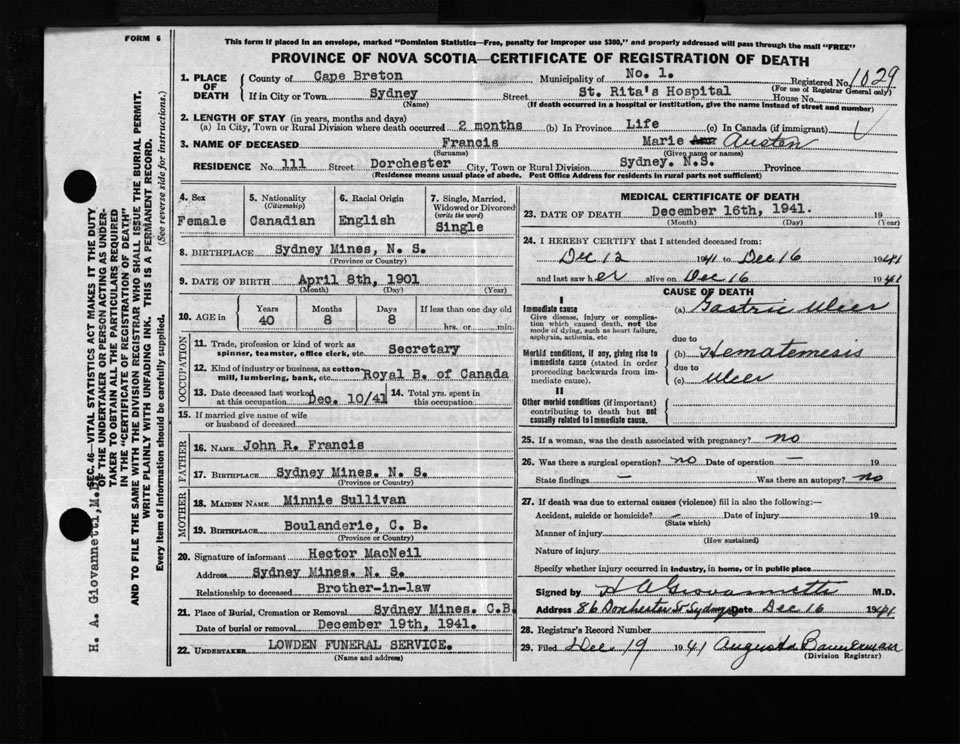 FORM 6
This form if placed in an envelope, marked "Dominion Statistics—Free, penalty for improper use $300," and properly addressed will pass through the mail "FREE"
PROVINCE OF NOVA SCOTIA—CERTIFICATE OF REGISTRATION OF DEATH
1. PLACE OF DEATH
County of Cape Breton Municipality of No. 1. Registered No. 1029
(For use of Registrar General only)
If in City or Town Sydney Street St. Rita's Hospital House No.
(Name) (If death occurred in a hospital or institution, give the name instead of street and number)
2. LENGTH OF STAY (in years, months and days)
(a) In City, Town or Rural Division where death occurred 2 months (b) In Province Life (c) In Canada (if immigrant)
3. NAME OF DECEASED Francis Marie Ann Austen
(Surname) (Given name or names)
RESIDENCE No. 111 Street Dorchester City, Town or Rural Division Sydney. N.S. Province
(Residence means usual place of abode. Post Office Address for residents in rural parts not sufficient)
4. Sex Female
5. Nationality (Citizenship) Canadian
6. Racial Origin English
7. Single, Married, Widowed or Divorced (write the word) Single
8. BIRTHPLACE Sydney Mines, N. S.
(Province or Country)
9. DATE OF BIRTH April 8th, 1901
(Month) (Day) (Year)
10. AGE in Years 40 Months 8 Days 8 If less than one day old hrs. or min.
OCCUPATION
11. Trade, profession or kind of work as spinner, teamster, office clerk, etc. Secretary
12. Kind of industry or business, as cotton mill, lumbering, bank, etc. Royal B. of Canada
13. Date deceased last worked at this occupation Dec. 10/41 14. Total yrs. spent in this occupation
15. If married give name of wife or husband of deceased
FATHER
16. NAME John R. Francis
17. BIRTHPLACE Sydney Mines. N. S.
(Province or Country)
MOTHER
18. MAIDEN NAME Minnie Sullivan
19. BIRTHPLACE Boulanderie, C. B.
(Province or Country)
20. Signature of informant Hector MacNeil
Address Sydney Mines. N. S.
Relationship to deceased Brother-in-law
21. Place of Burial, Cremation or Removal Sydney Mines. C.B
Date of burial or removal December 19th, 1941.
22. UNDERTAKER LOWDEN FUNERAL SERVICE.
(Name and address)
MEDICAL CERTIFICATE OF DEATH
23. DATE OF DEATH December 16th, 1941. 19
(Month) (Day) (Year)
24. I HEREBY CERTIFY that I attended deceased from:
Dec 12 1941 to Dec 16 1941
and last saw her alive on Dec 16 1941
CAUSE OF DEATH
I
Immediate cause
Give disease, injury or complication which caused death, not the mode of dying, such as heart failure, asphyxia, asthenia, etc
(a) Gastric Ulcer
due to
Morbid conditions, if any, giving rise to immediate cause (stated in order proceeding backwards from immediate cause).
(b) Hematemesis
due to
(c) Ulcer
II
Other morbid conditions (if important) contributing to death but not causally related to immediate cause.
25. If a woman, was the death associated with pregnancy? no
26. Was there a surgical operation? no Date of operation — 19
State findings — Was there an autopsy? no
27. If death was due to external causes (violence) fill in also the following:—
Accident, suicide or homicide? — Date of injury 19
(State which)
Manner of injury
(How sustained)
Nature of injury
Specify whether injury occurred in industry, in home, or in public place
Signed by H A Giovannetti M.D.
Address 86 Dorchester St Sydney Date Dec 16 1941
28. Registrar's Record Number
29. Filed Dec 19 1941 Augusta
(Division Registrar)
SEC. 46—VITAL STATISTICS ACT MAKES IT THE DUTY
OF THE UNDERTAKER OR PERSON ACTING AS UNDER-
TAKER TO OBTAIN ALL THE PARTICULARS REQUIRED
IN THE "CERTIFICATE OF REGISTRATION OF DEATH"
AND TO FILE THE SAME WITH THE DIVISION REGISTRAR WHO SHALL ISSUE THE BURIAL PERMIT.
WRITE PLAINLY WITH UNFADING INK. THIS IS A PERMANENT RECORD.
Every item of information should be carefully supplied. (See reverse side for instructions.)
H. A. Giovannetti, M.D.